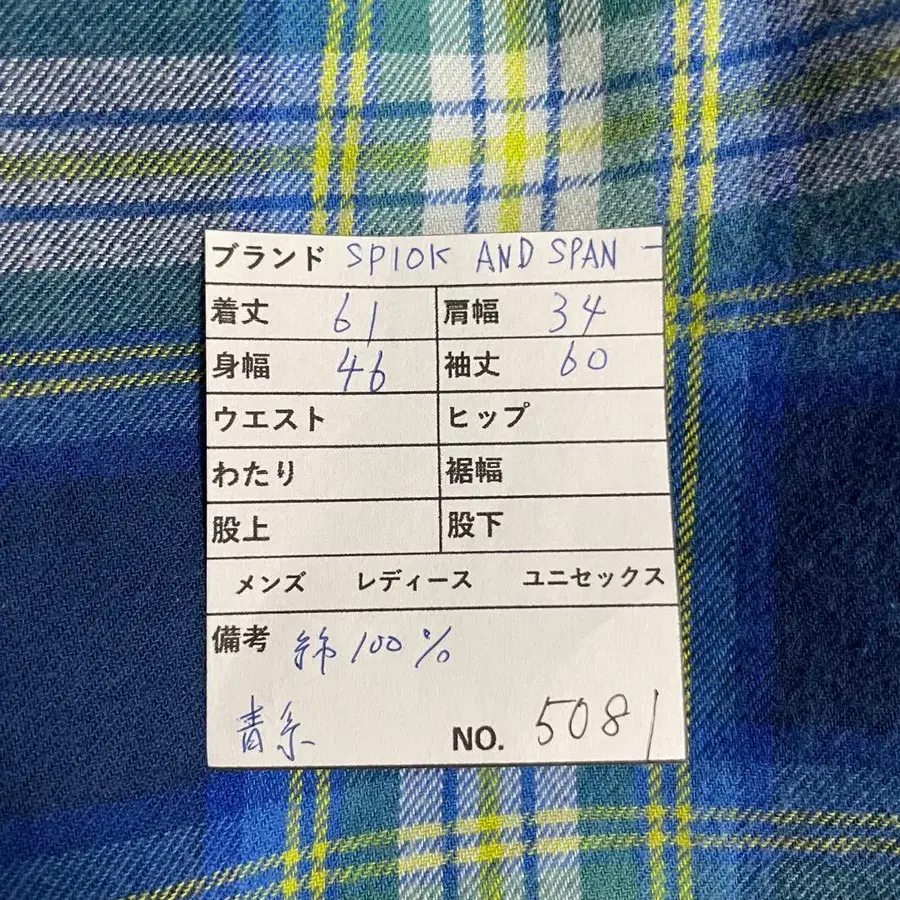 ブランド SPIOK AND SPAN -
着丈 61 肩幅 34
身幅 46 袖丈 60
ウエスト ヒップ
わたり 裾幅
股上 股下
メンズ レディース ユニセックス
備考 綿100%
青系 NO. 5081